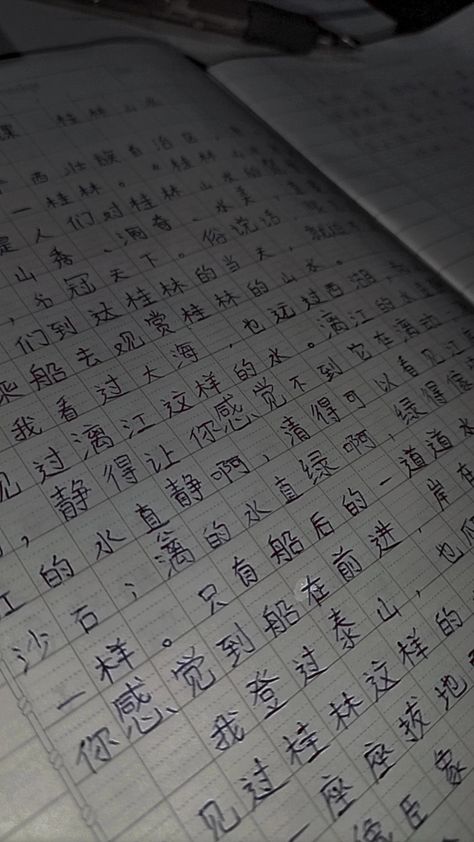 课 桂林山水
西壮族自治区,
一桂林。“桂林
是人们对桂林山水的
山秀、洞奇、水美,
,名冠天下。俗说话,
们到达桂林的当天,就
乘船去观赏桂林的山水。
我看过大海,也远过西湖,
见过漓江这样的水。漓江的水
,静得让你感觉不到它在漓动
江的水直静啊,清得可以看见江
沙石;漓的水直绿啊,绿得
一样。只有船后的一道道水
你感觉到船在前进,岸在
我登过泰山,也
见过桂林这样的
一座座拔地
像臣象